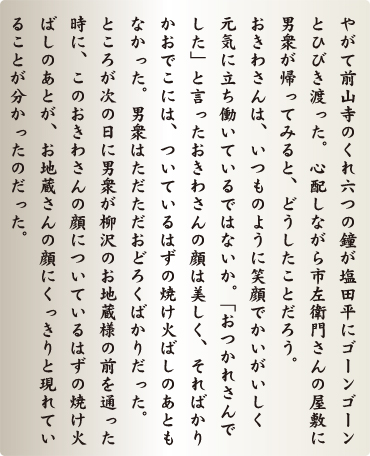 やがて前山寺のくれ六つの鐘が塩田平にゴーンゴーン
とひびき渡った。心配しながら市左衛門さんの屋敷に
男衆が帰ってみると、どうしたことだろう。
おきわさんは、いつものように笑顔でかいがいしく
元気に立ち働いているではないか。「おつかれさんで
した」と言ったおきわさんの顔は美しく、そればかり
かおでこには、ついているはずの焼け火ばしのあとも
なかった。男衆はただただおどろくばかりだった。
ところが次の日に男衆が柳沢のお地蔵様の前を通った
時に、このおきわさんの顔についているはずの焼け火
ばしのあとが、お地蔵さんの顔にくっきりと現れてい
ることが分かったのだった。